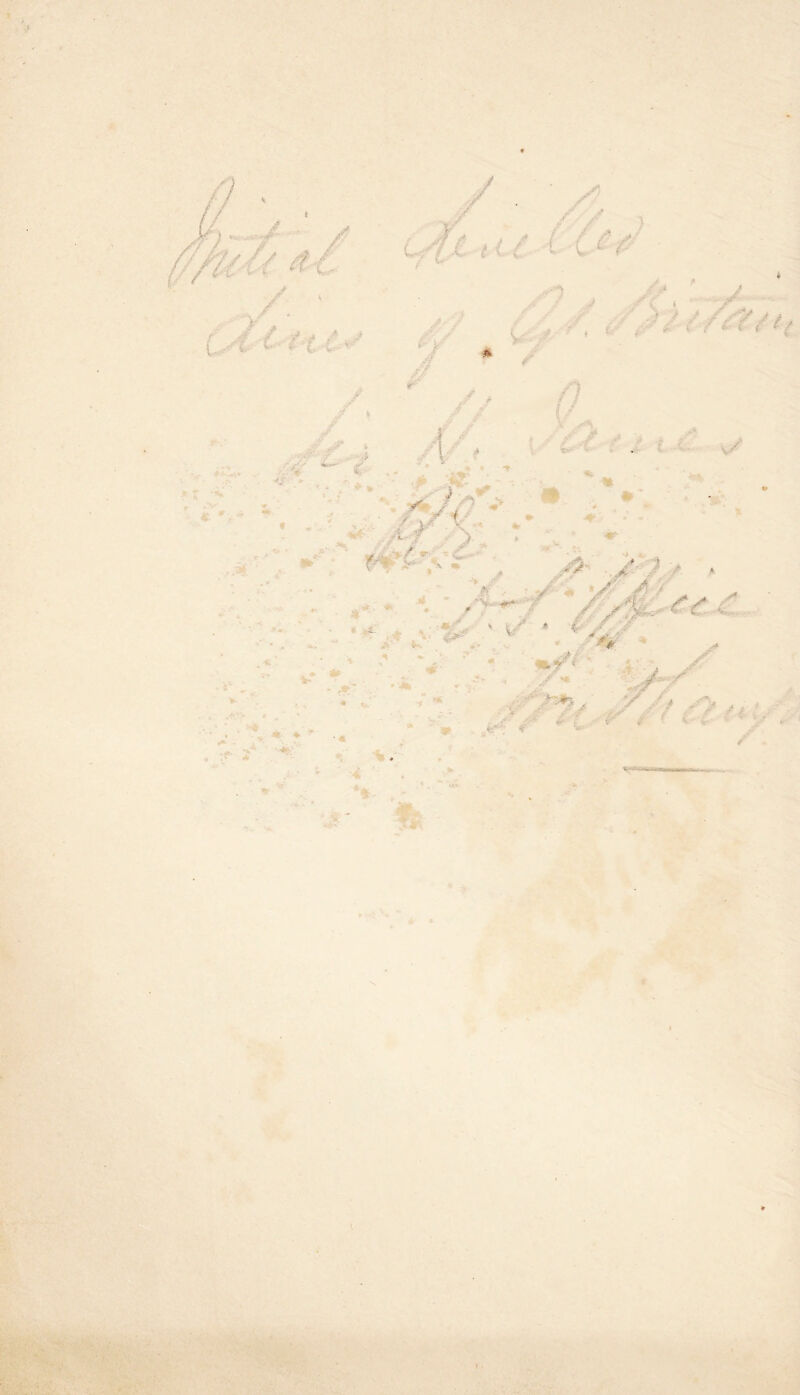 Initial Levelled
Lines of Gt. Britain
Sir H. James
RE
O.S. Office
Southamp